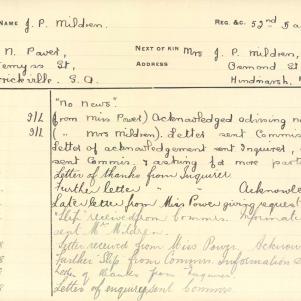 NAME J. P. Mildren. REG. &C. 52nd 5
N. Power, NEXT OF KIN Mrs J. P. Mildren,
St, ADDRESS Osmond St
rickville. S.A. Hindmarsh,
"No News".
9/2 from Miss Power) Acknowledged advising
9/2 ( " Mrs Mildren). Letter sent Commis
Letter of acknowledgement sent Inquirer,
sent Commis. & asking for more part
Letter of thanks from Inquirer
Further letter " " Acknowle
Later letter from Miss Power giving reques
"Slip" received from Commrs.
sent Mrs Mildren.
8 Letter received from Miss Power. Acknow
8 Further Slip from Commrs. Information
8 Letter of thanks from Enquirer
8 Letter of enquiry sent Commrs.